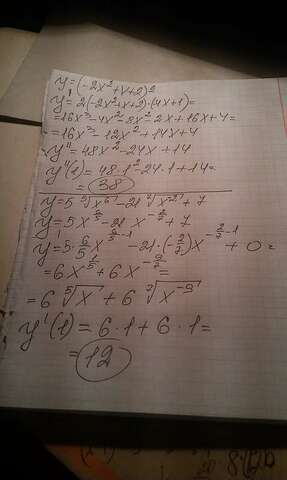 y=(-2x²+x+2)²
y'=2(-2x²+x+2)·(4x+1)=
=16x³-4x²-8x²-2x+16x+4=
=16x³-12x²+14x+4
y''=48x²-24x+14
y''(1)=48·1²-24·1+14=
=38
y=5⁵√x⁶-21⁷√x⁻²+7
y=5x^(6/5)-21x^(-2/7)+7
y'=5·6/5x^(6/5-1)-21·(-2/7)x^(-2/7-1)+0=
=6x^(1/5)+6x^(-9/7)=
=6⁵√x+6⁷√x⁻⁹
y'(1)=6·1+6·1=
=12